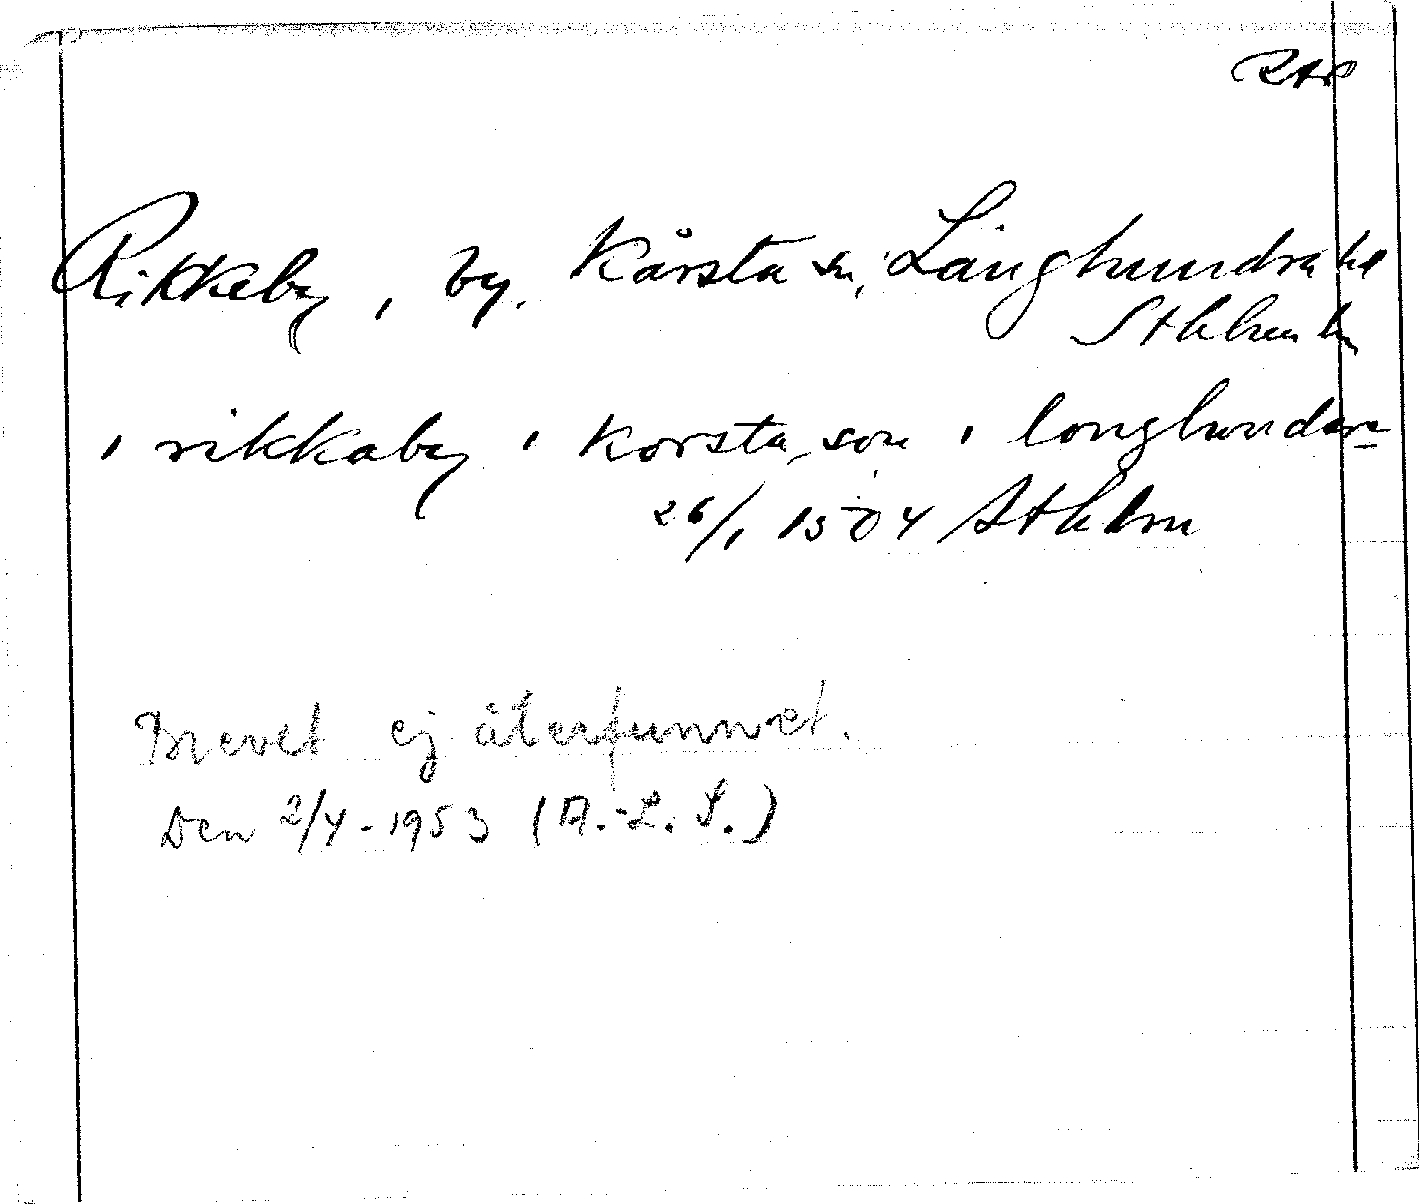 RAp
Rikkeby, by. Kårsta sn, Långhundra hd
Sthlm ln
i rikkaby i korsta son i longhundare
26/1 1504 Sthlm
Brevet ej återfunnet.
Den 2/4-1953 (A.-L. S.)